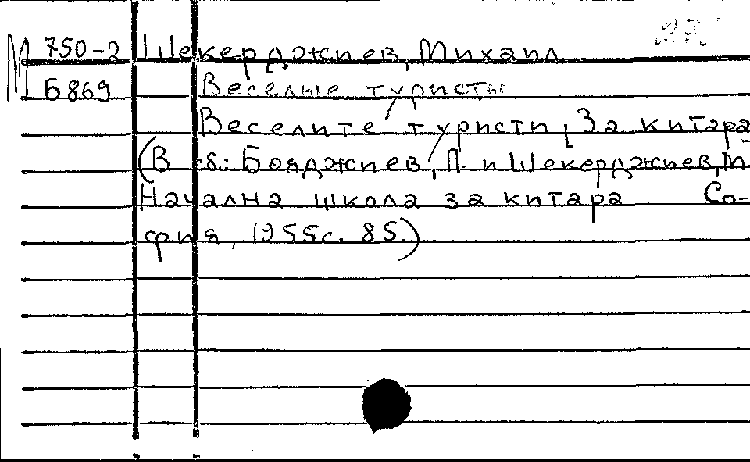 М 750-2 Шекерджиев, Михаил
Б869 Веселые туристы
Веселите туристи, За китара
(В сб: Бояджиев, Л. и Шекерджиев, М
Начална школа за китара Со-
фия, 1955 с. 85.)